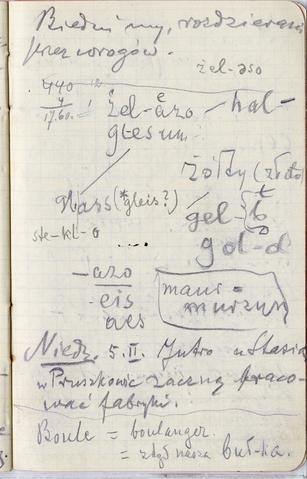 Biedni my, rozdzierani
przez wrogów.
żel-aso
440
4
1760.
żel-ăzo — hal-
glesum
żółty (złoto)
glass (*gleis?)
gel-b
t
ste-kl-o
gol-d
....
-azo
-eis
aes
maur =
murzyn
Niedz. 5.II. Jutro u Stasia
w Pruszkowie zaczną praco-
wać fabryki.
Boule = boulanger.
= stąd nasza buł-ka.